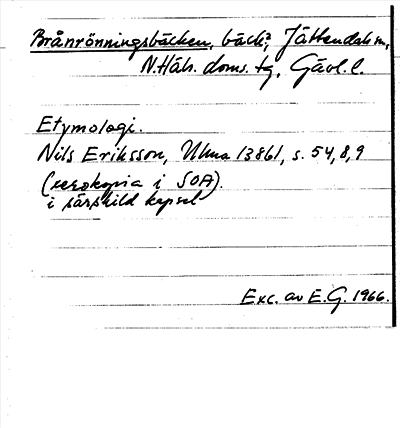 Brånrönningsbäcken, bäck?, Jättendals sn,
N.Häls. doms. tg, Gävl. l.
Etymologi.
Nils Eriksson, Ulma 13861, s. 54, 8, 9
(xerokopia i SOA).
i särskild kapsel
Exc. av E.G. 1966.